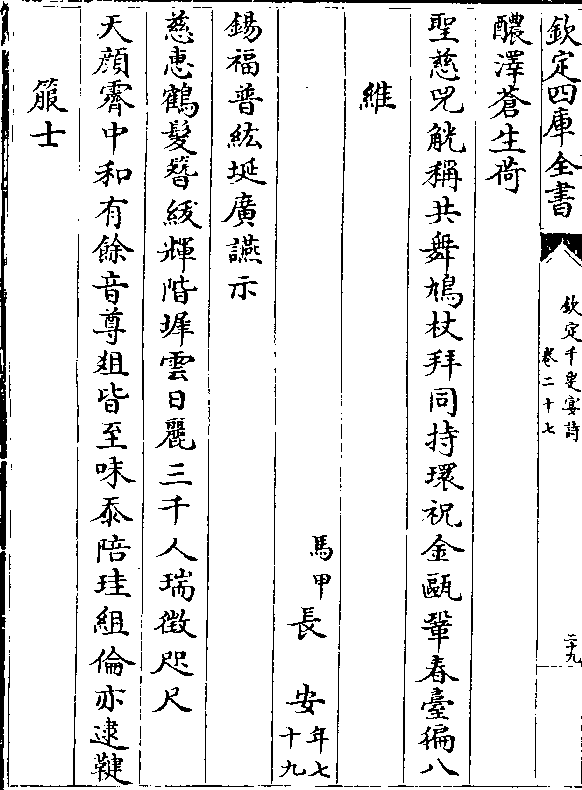 欽定四庫全書
欽定千叟宴詩
卷二十七
二十九
醲澤蒼生荷
聖慈兕觥稱共舞鳩杖拜同持環祝金甌鞏春臺徧八
維
馬甲長安年七十九
錫福普紘埏廣讌示
慈惠鶴髮簪紱輝階墀雲日麗三千人瑞徵咫尺
天顔霽中和有餘音尊俎皆至味忝陪珪組倫亦逮鞬
箙士